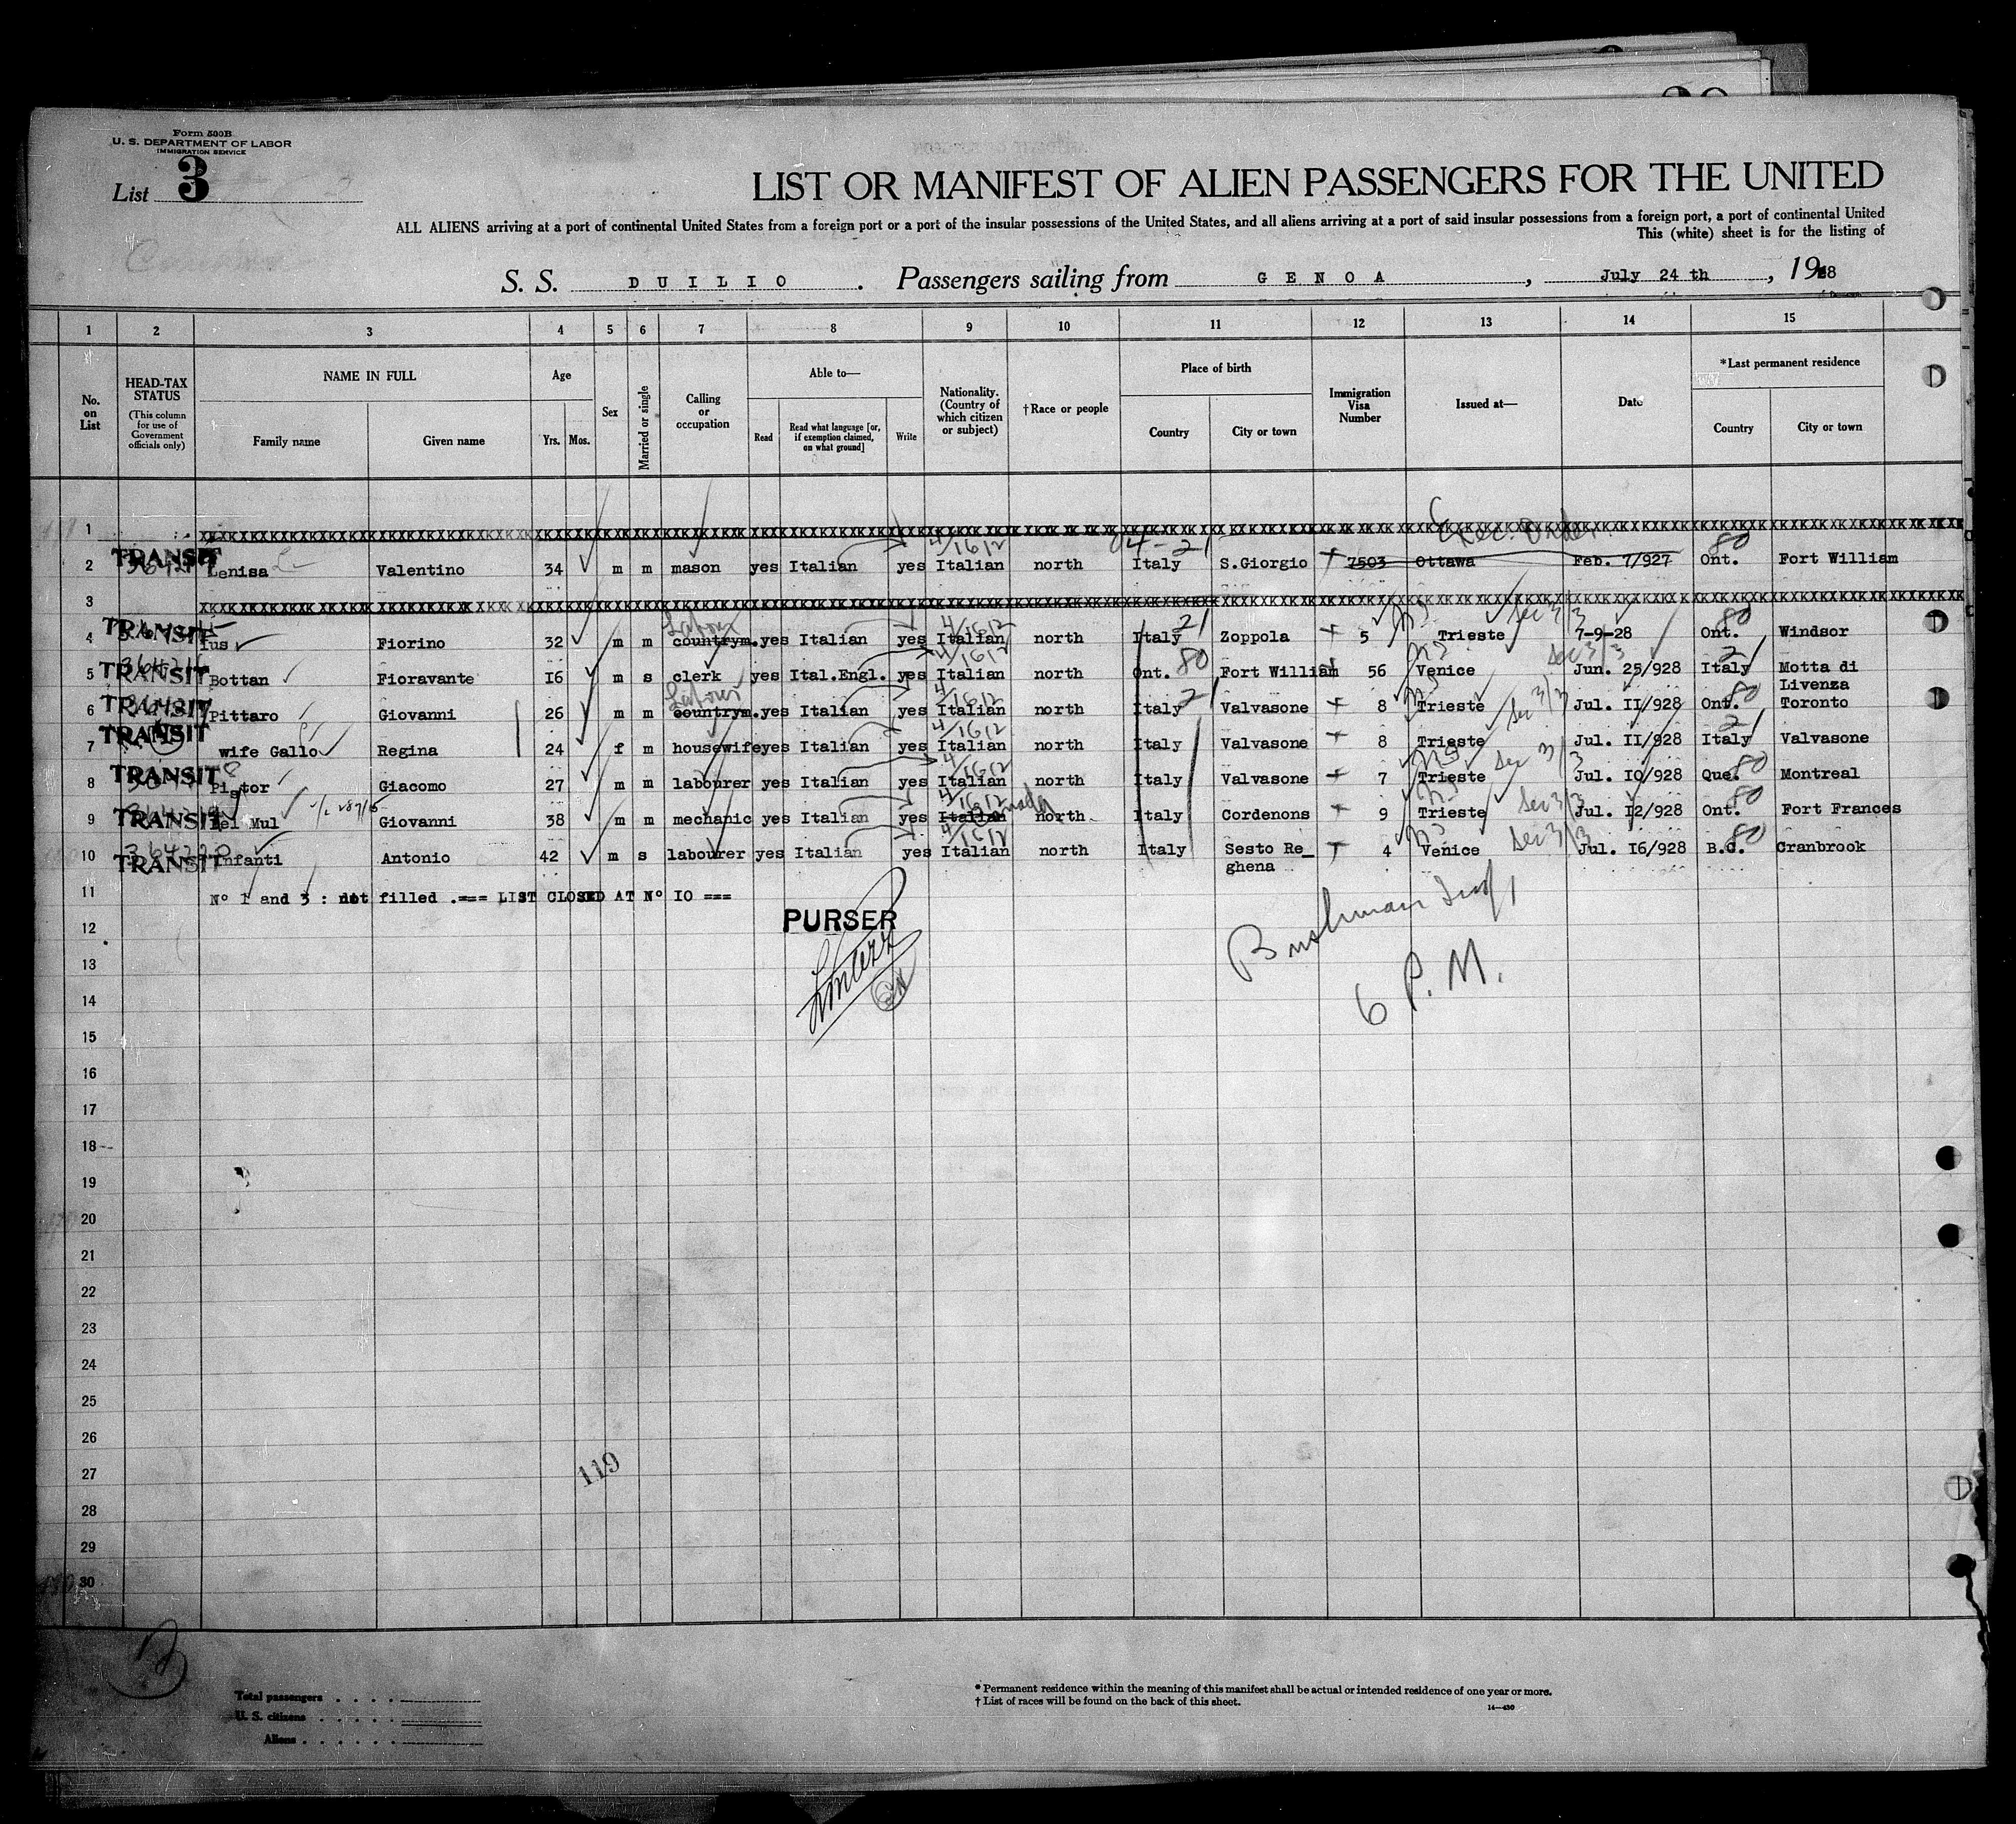 Form 500B
U. S. DEPARTMENT OF LABOR
IMMIGRATION SERVICE
List 3
LIST OR MANIFEST OF ALIEN PASSENGERS FOR THE UNITED
ALL ALIENS arriving at a port of continental United States from a foreign port or a port of the insular possessions of the United States, and all aliens arriving at a port of said insular possessions from a foreign port, a port of continental United
This (white) sheet is for the listing of
S. S. DUILIO . Passengers sailing from GENOA , July 24 th , 1928
1 2 3 4 5 6 7 8 9 10 11 12 13 14 15
No. on List
HEAD-TAX STATUS (This column for use of Government officials only)
NAME IN FULL Family name Given name
Age Yrs. Mos.
Sex
Married or single
Calling or occupation
Able to— Read Read what language [or, if exemption claimed, on what ground] Write
Nationality. (Country of which citizen or subject)
†Race or people
Place of birth Country City or town
Immigration Visa Number
Issued at—
Date
*Last permanent residence Country City or town
1
Exec. Order
2 TRANSIT Lenisa Valentino 34 m m mason yes Italian yes Italian north Italy S.Giorgio 7503 Ottawa Feb. 7/927 Ont. 80 Fort William
3
4 TRANSIT Ius Fiorino 32 m m countrym. Labour yes Italian yes Italian north Italy 21 Zoppola 5 Trieste 7-9-28 Ont. 80 Windsor
5 TRANSIT Bottan Fioravante 16 m s clerk yes Ital.Engl. yes Italian north Ont. 80 Fort William 56 Venice Jun. 25/928 Italy 21 Motta di Livenza
6 TRANSIT Pittaro Giovanni 26 m m countrym. Labour yes Italian yes Italian north Italy 21 Valvasone 8 Trieste Jul. II/928 Ont. 80 Toronto
7 TRANSIT wife Gallo Regina 24 f m housewife yes Italian yes Italian north Italy Valvasone 8 Trieste Jul. II/928 Italy 21 Valvasone
8 TRANSIT Pistor Giacomo 27 m m labourer yes Italian yes Italian north Italy Valvasone 7 Trieste Jul. I0/928 Que. 80 Montreal
9 TRANSIT Del Mul Giovanni 38 m m mechanic yes Italian yes Italian north Italy Cordenons 9 Trieste Jul. I2/928 Ont. 80 Fort Frances
10 TRANSIT Infanti Antonio 42 m s labourer yes Italian yes Italian north Italy Sesto Re_ghena 4 Venice Jul. I6/928 B.C. 80 Cranbrook
11 N° 1 and 3 : not filled .=== LIST CLOSED AT N° IO ===
12 PURSER
Bushman Insp,
13
6 P. M.
14
15
16
17
18
19
20
21
22
23
24
25
26
27
119
28
29
30
Total passengers
U. S. citizens
Aliens
* Permanent residence within the meaning of this manifest shall be actual or intended residence of one year or more.
† List of races will be found on the back of this sheet.
14—430